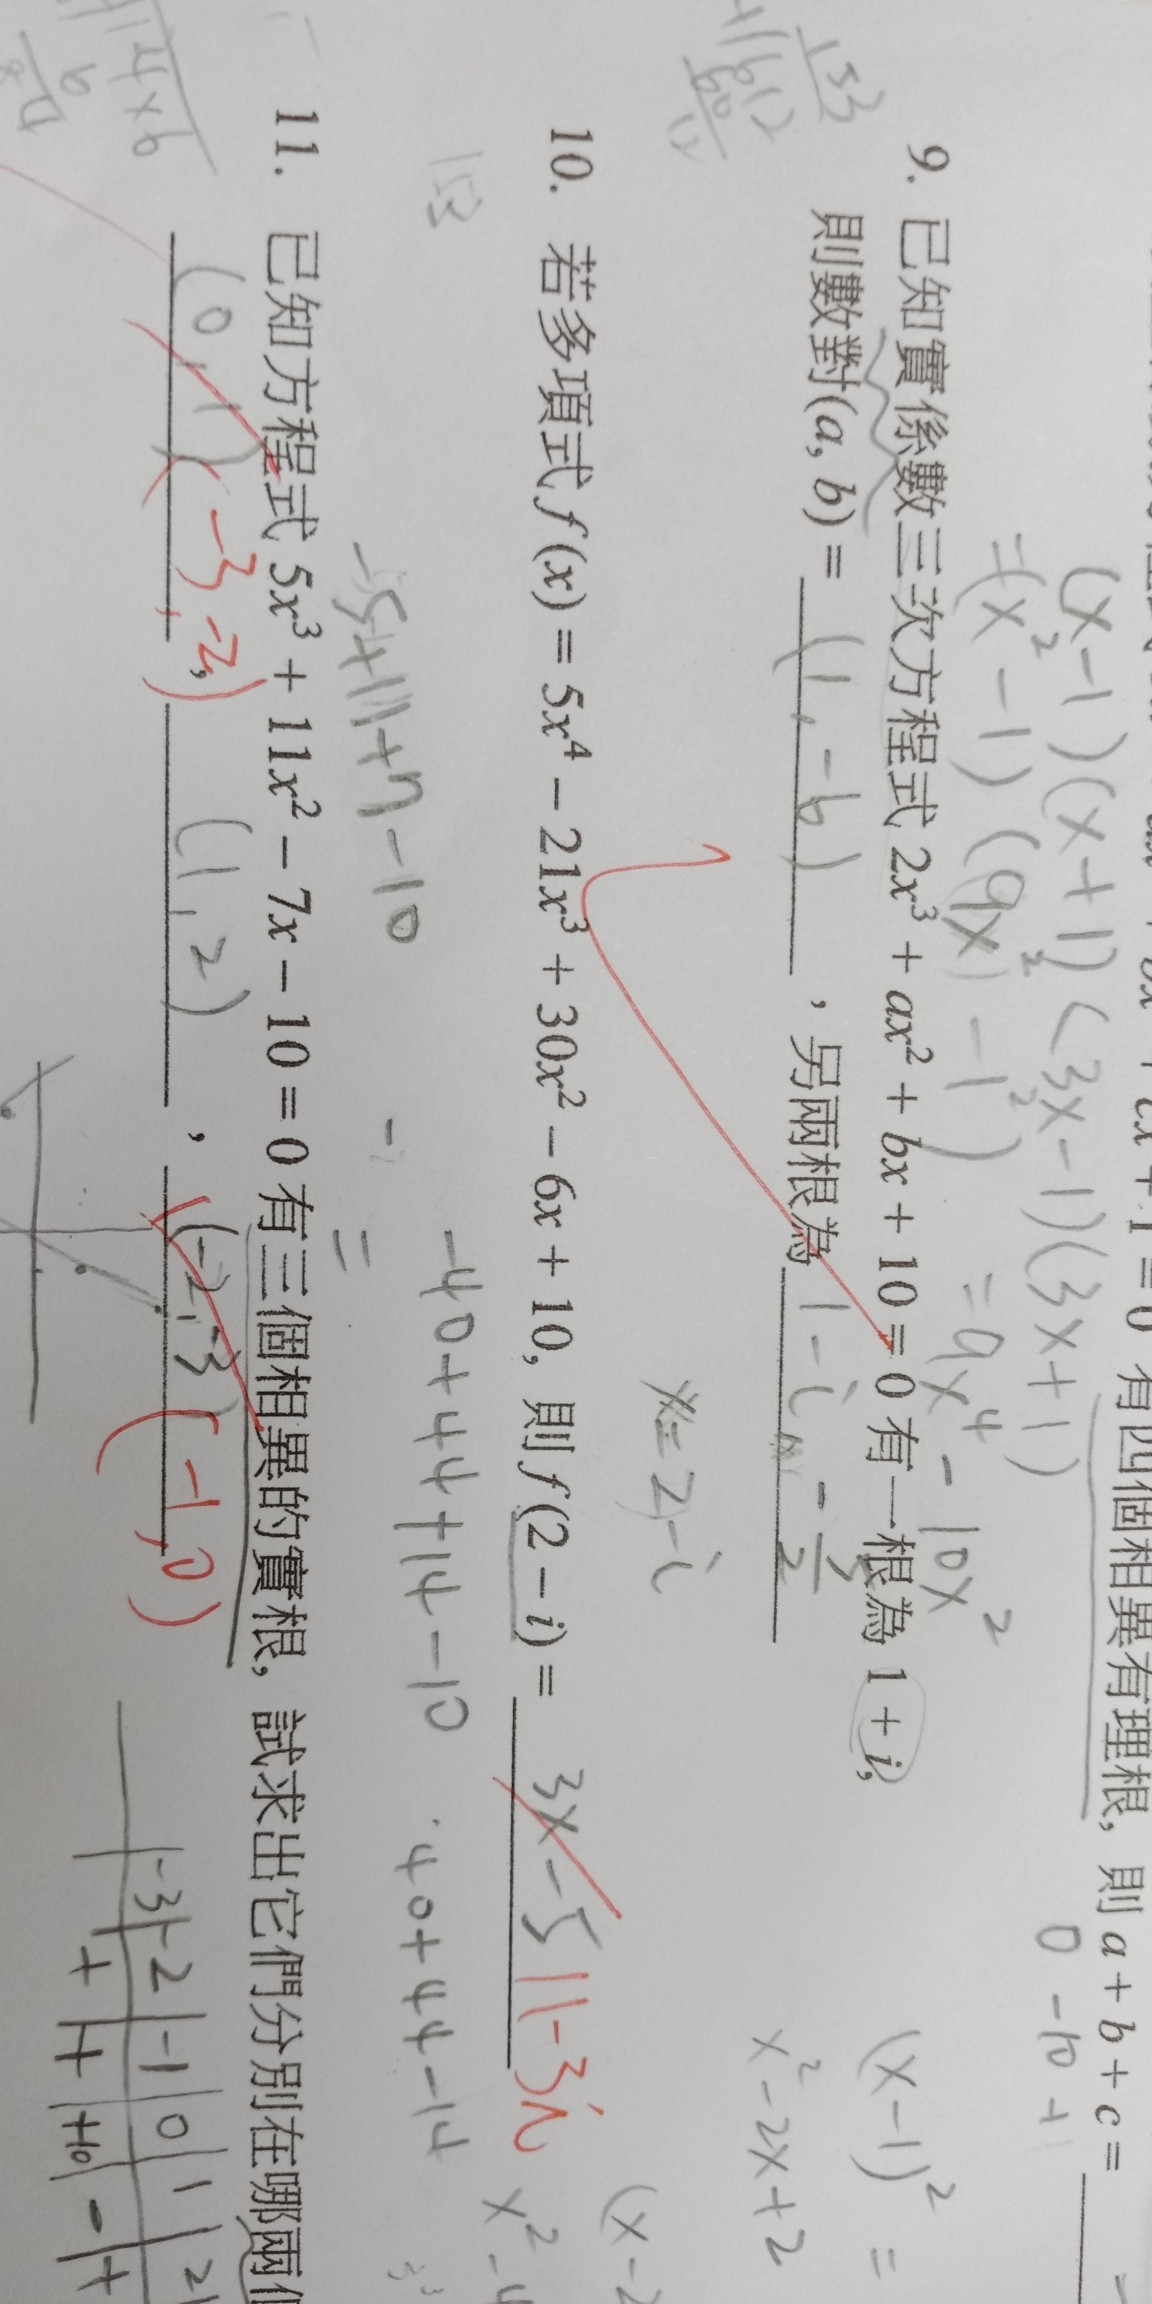 有四個相異有理根, 則 a + b + c =
0 -10 +1
(x-1)(x+1)(3x-1)(3x+1)
=(x²-1)(9x²-1²)
=9x⁴-10x²
9. 已知實係數三次方程式 2x³ + ax² + bx + 10 = 0 有一根為 1 + i,
(x-1)² =
則數對(a, b) = (1, -6) , 另兩根為 1-i, -5/2
x²-2x+2
x=2-i
10. 若多項式 f(x) = 5x⁴ − 21x³ + 30x² − 6x + 10, 則 f(2 − i) = 3x-5 11-3i
(x-2
x²-4
-40+44+14-10
40+44-14
-5+11+7-10
11. 已知方程式 5x³ + 11x² − 7x − 10 = 0 有三個相異的實根, 試求出它們分別在哪兩
(0, 1) (-3, -2) (1, 2) , (-2, -3) (-1, 0)
-3 -2 -1 0 1 2